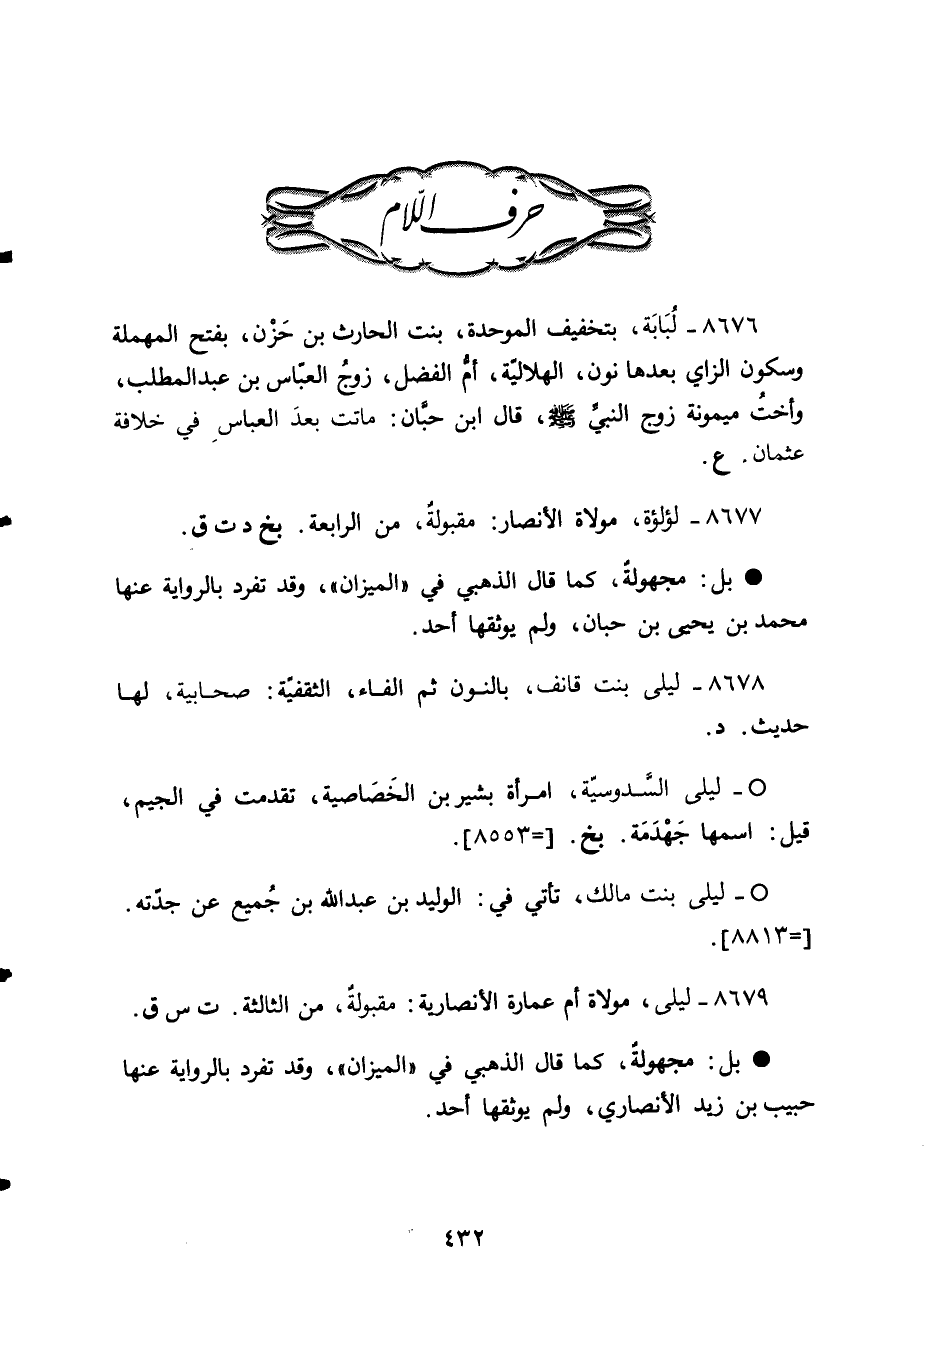 حرف اللّام
٨٦٧٦ ـ لُبَابَة، بتخفيف الموحدة، بنت الحارث بن حَزْن، بفتح المهملة
وسكون الزاي بعدها نون، الهلاليّة، أمُّ الفضل، زوجُ العبّاس بن عبدالمطلب،
وأختُ ميمونة زوج النبيِّ ﷺ، قال ابن حبَّان: ماتت بعدَ العباس في خلافة
عثمان. ع.
٨٦٧٧ ـ لؤلؤة، مولاة الأنصار: مقبولةٌ، من الرابعة. بخ د ت ق.
● بل: مجهولةٌ، كما قال الذهبي في «الميزان»، وقد تفرد بالرواية عنها
محمد بن يحيى بن حبان، ولم يوثقها أحد.
٨٦٧٨ ـ ليلى بنت قانف، بالنون ثم الفاء، الثقفيّة: صحابية، لها
حديث. د.
○ ـ ليلى السَّدوسيّة، امرأة بشير بن الخَصَاصية، تقدمت في الجيم،
قيل: اسمها جَهْدَمَة. بخ. [=٨٥٥٣].
○ ـ ليلى بنت مالك، تأتي في: الوليد بن عبدالله بن جُميع عن جدّته.
[=٨٨١٣].
٨٦٧٩ ـ ليلى، مولاة أم عمارة الأنصارية: مقبولةٌ، من الثالثة. ت س ق.
● بل: مجهولةٌ، كما قال الذهبي في «الميزان»، وقد تفرد بالرواية عنها
حبيب بن زيد الأنصاري، ولم يوثقها أحد.
٤٣٢